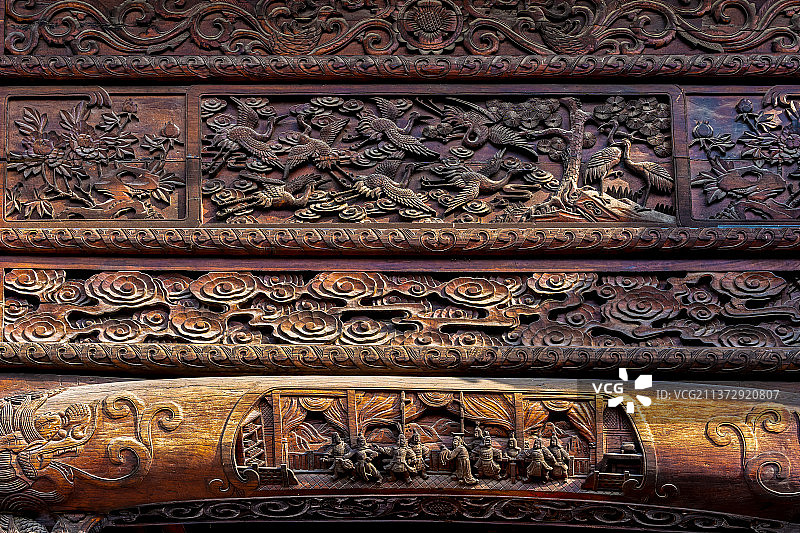 VCG VCG211372920807